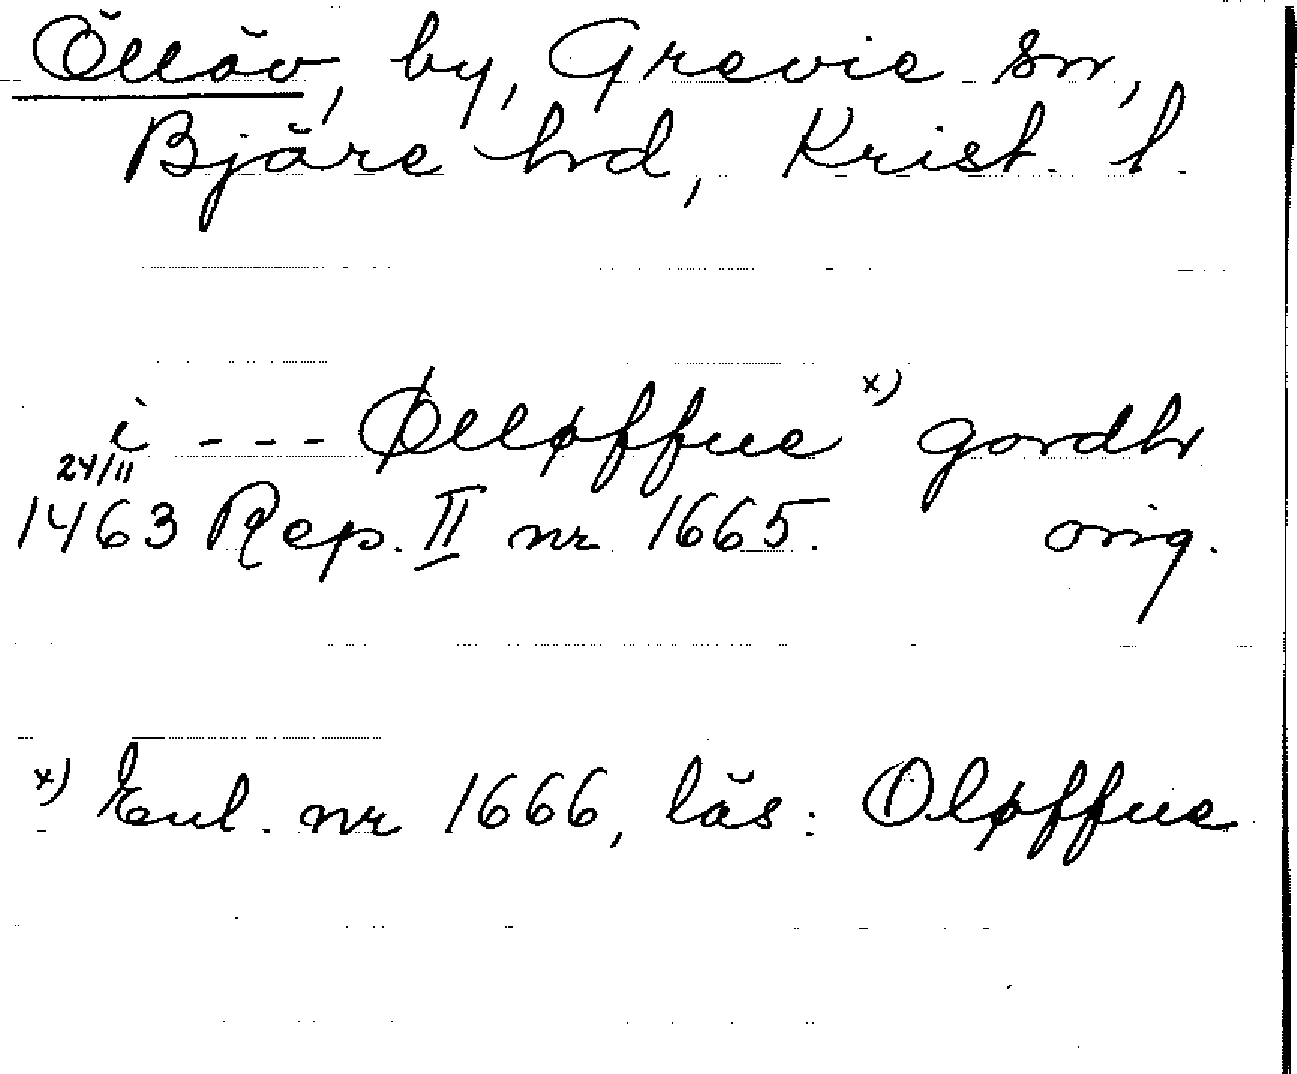 Öllöv, by, Grevie sn,
Bjäre hd, Krist. l.
i ---Ølløffue x) gordh
24/11
1463 Rep. II nr 1665. orig.
x) Enl. nr 1666, läs: Oløffue